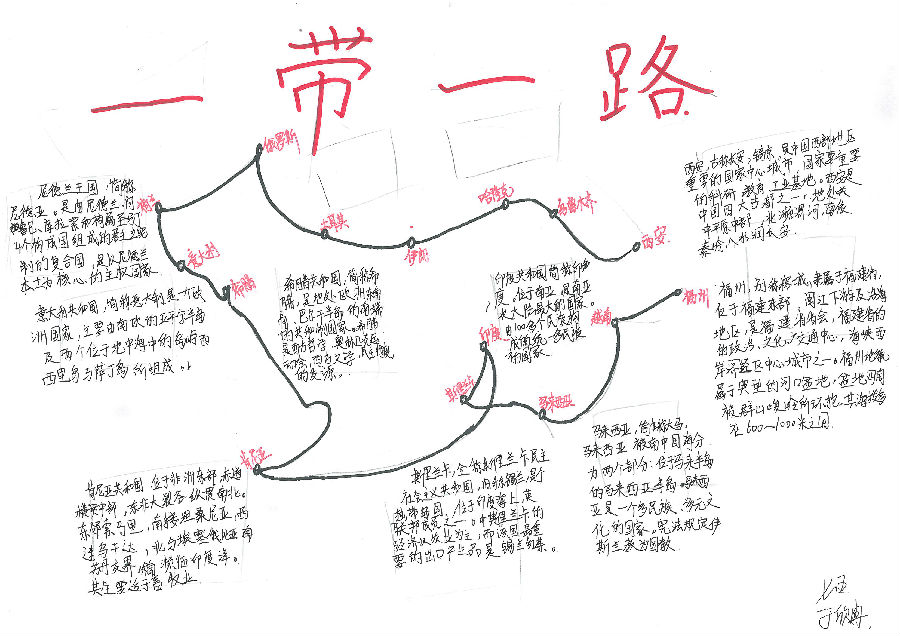 一带一路
俄罗斯
荷兰
意大利
希腊
土耳其
伊朗
哈萨克
乌鲁木齐
西安
福州
越南
马来西亚
斯里兰卡
印度
肯尼亚
尼德兰王国，简称
尼德兰。是由尼德兰、阿
4个构成国组成的君主立宪
制的复合国，是以尼德兰
本土为核心的主权国家。
意大利共和国，简称意大利是一个欧
洲国家，主要由南欧的亚平宁半岛
及两个位于地中海中的岛屿西
西里岛与萨丁岛所组成。
希腊共和国，简称希
腊，是地处欧洲东南
角、巴尔干半岛的南端
的共和制国家。希腊
的发源。
印度共和国简称印
度。位于南亚，是南亚
次大陆最大的国家。
由100多个民族构
成的统一多民族
的国家。
西安，古称长安、镐京，是中国西部地区
重要的国家中心城市，国家重要
的科研、教育、工业基地。西安是
中国四大古都之一，地处关
中平原中部，北濒渭河，南依
秦岭，八水润长安。
位于福建东部、闽江下游及沿海
地区，是福建省省会，福建省的
政治、文化、交通中心，海峡西
岸经济区中心城市之一。福州地貌
属于典型的河口盆地，盆地四周
被群山峻岭所环抱，其海拔多
在600~1000米之间。
肯尼亚共和国 位于非洲东部，赤道
横贯中部，东非大裂谷纵贯南北。
东邻索马里，南接坦桑尼亚，西
连乌干达，北与埃塞俄比亚南
苏丹交界，东南濒临印度洋。
斯里兰卡，全称斯里兰卡民主
社会主义共和国，旧称锡兰，是个
热带岛国，位于印度洋上，英
联邦成员之一。中斯里兰卡的
经济以农业为主，而该国最重
要的出口产品是锡兰红茶。
马来西亚，简称大马，
马来西亚被南中国海分
为两个部分：位于马来半岛
的马来西亚半岛。
亚是一个多民族、多元文
化的国家。宪法规定伊
斯兰教为国教